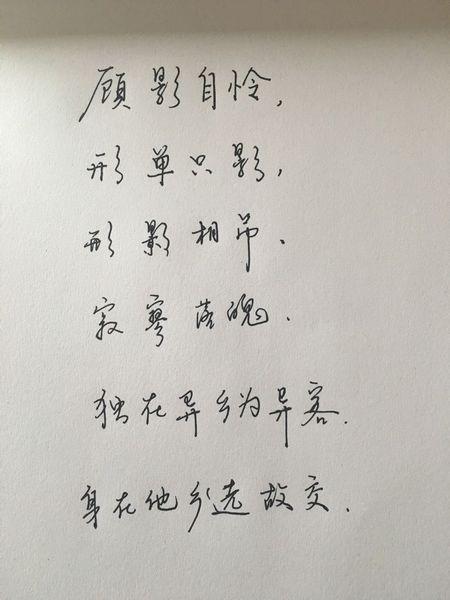 顾影自怜,
形单只影,
形影相吊、
寂寥落魄.
独在异乡为异客.
身在他乡故交.